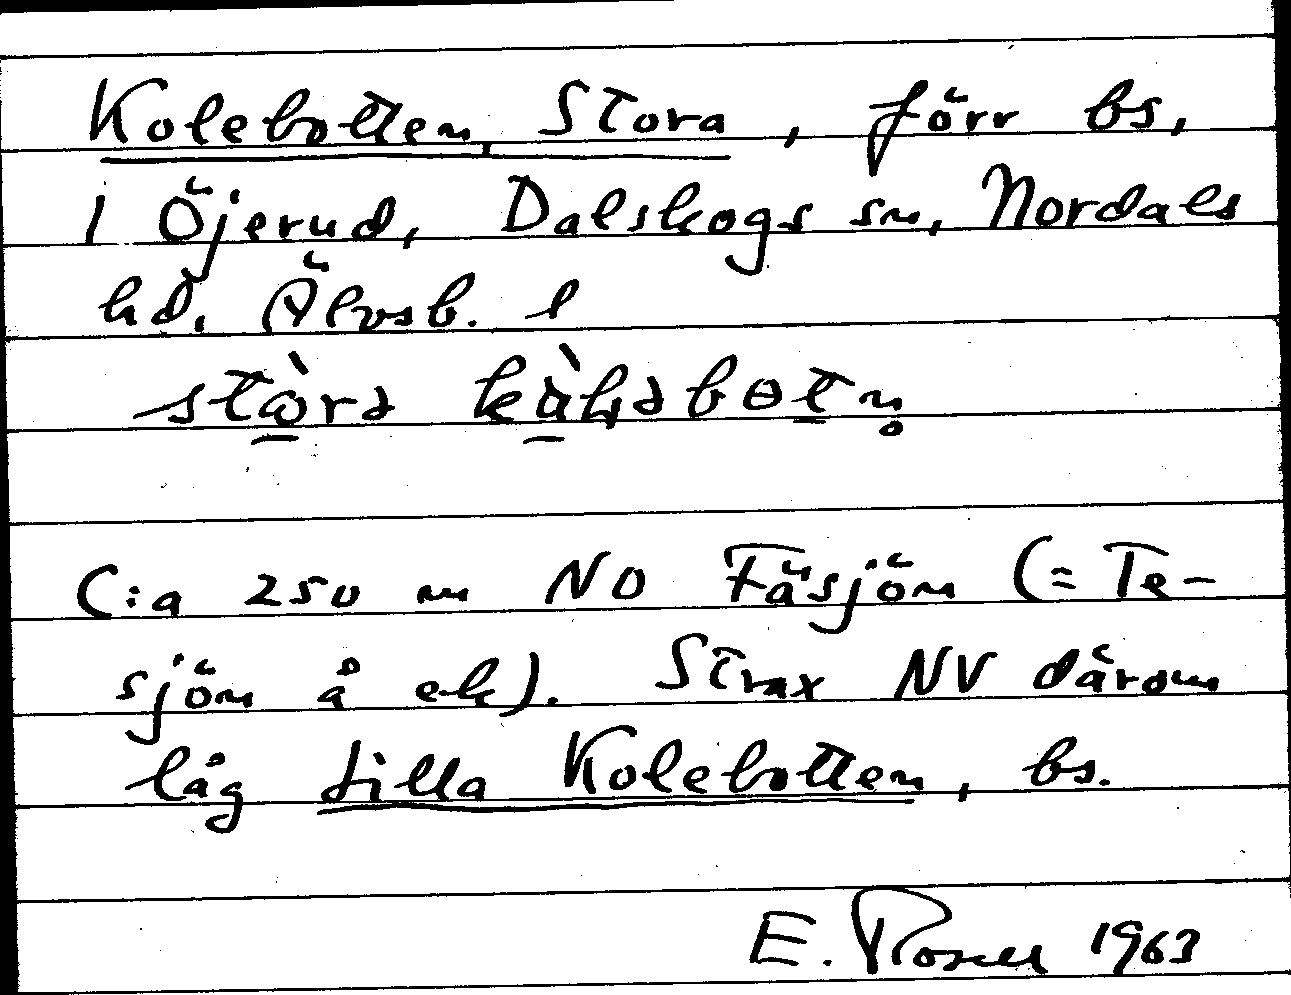 Kolebotten, Stora, förr bs,
i Öjerud, Dalskogs sn, Nordals
hd. Älvsb. l
C:a 250 m NO Fäsjön (= Te-
sjön å ek). Strax NV därom
låg Lilla Kolebotten, bs.
E. Rosell 1963